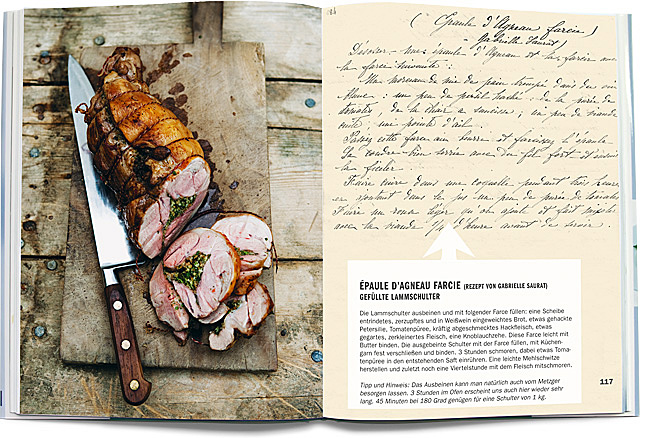 ( Épaule d'Agneau farcie )
( Gabrielle Saurat )
Désosser une épaule d'Agneau et la farcir avec
la farce suivante :
Un morceau de mie de pain trempé dans du vin
blanc ; un peu de persil haché ; de la purée de
tomates, de la chair à saucisse ; un peu de viande
cuite ; une pointe d'ail.
Passez cette farce au beurre et farcissez l'épaule.
La coudre bien serrée avec du fil fort et
la ficeler.
Faire cuire dans une cocotte pendant trois heures
en ajoutant dans le jus un peu de purée de tomates
Faire un roux léger qu'on ajoute et fait mijoter
avec la viande 1/4 d'heure avant de servir.
ÉPAULE D'AGNEAU FARCIE (REZEPT VON GABRIELLE SAURAT)
GEFÜLLTE LAMMSCHULTER
Die Lammschulter ausbeinen und mit folgender Farce füllen: eine Scheibe
entrindetes, zerzupftes und in Weißwein eingeweichtes Brot, etwas gehackte
Petersilie, Tomatenpüree, kräftig abgeschmecktes Hackfleisch, etwas
gegartes, zerkleinertes Fleisch, eine Knoblauchzehe. Diese Farce leicht mit
Butter binden. Die ausgebeinte Schulter mit der Farce füllen, mit Küchen-
garn fest verschließen und binden. 3 Stunden schmoren, dabei etwas Toma-
tenpüree in den entstehenden Saft einrühren. Eine leichte Mehlschwitze
herstellen und zuletzt noch eine Viertelstunde mit dem Fleisch mitschmoren.
Tipp und Hinweis: Das Ausbeinen kann man natürlich auch vom Metzger
besorgen lassen. 3 Stunden im Ofen erscheint uns auch hier wieder sehr
lang. 45 Minuten bei 180 Grad genügen für eine Schulter von 1 kg.
117